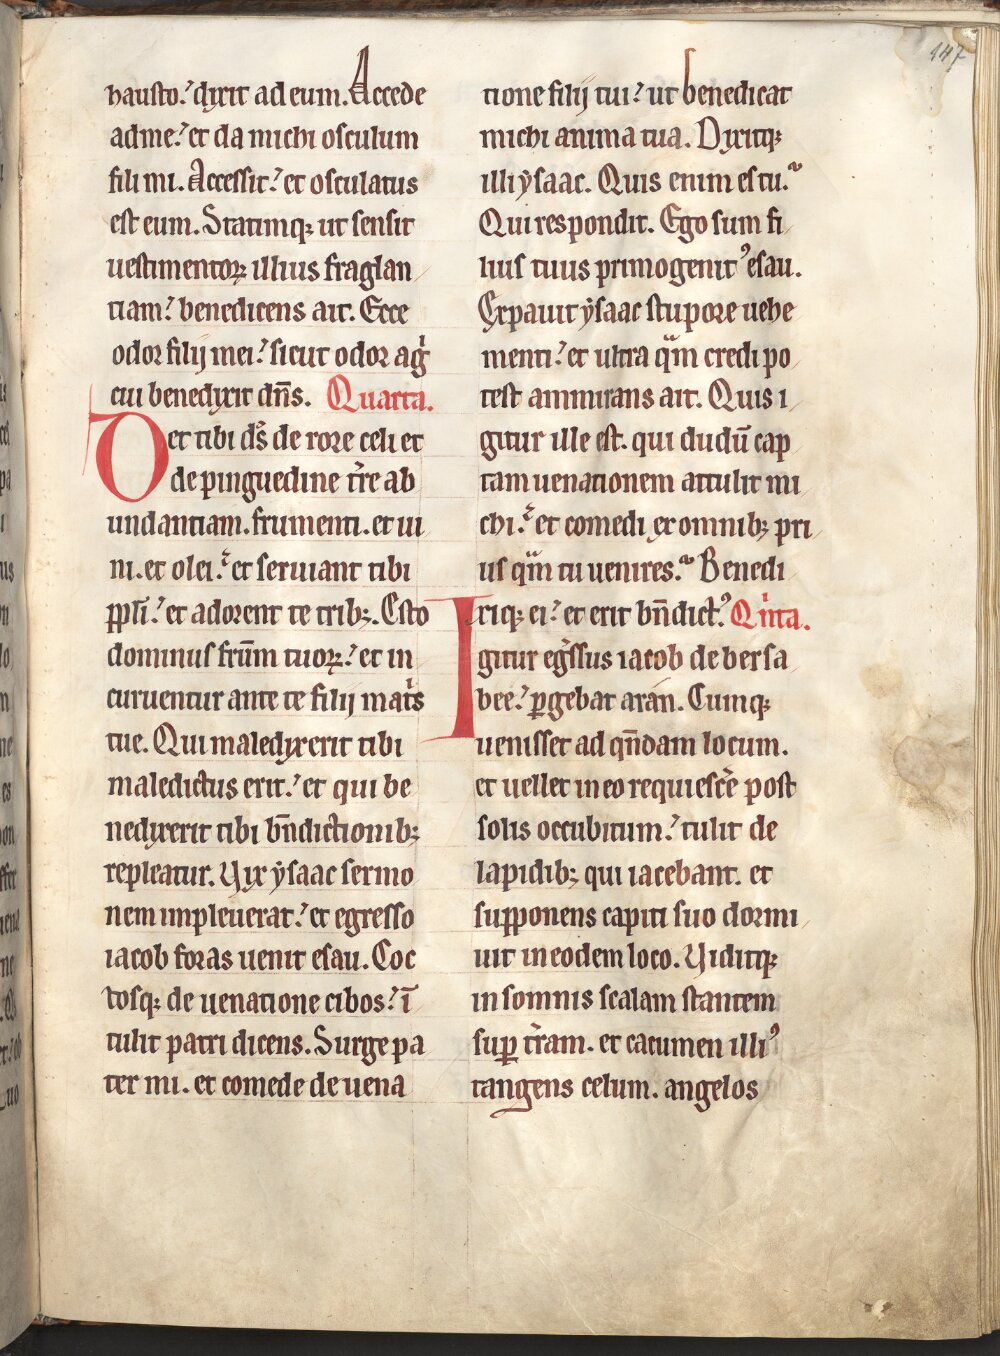 147
hausto. dixit ad eum. Accede
ad me. et da michi osculum
fili mi. Accessit. et osculatus
est eum. Statimqꝫ ut sensit
uestimentoꝝ illius fraglan
tiam. benedicens ait. Ecce
odor filij mei. sicut odor agͥ
cui benedixit dn̄s. Quarta.
Det tibi dꝰs de rore celi et
de pinguedine t̄re ab
undantiam. frumenti. et ui
ni. et olei. et seruiant tibi
ppl̄i. et adorent te tribꝫ. Esto
dominus frūm tuoꝝ. et in
curuentur ante te filij matͥs
tue. Qui maledixerit tibi
maledictus erit. et qui be
nedixerit tibi bn̄dictionibꝫ
repleatur. Vix ẏsaac sermo
nem impleuerat. et egresso
iacob foras uenit esau. Coc
tosqꝫ de uenatione cibos. ī
tulit patri dicens. Surge pa
ter mi. et comede de uena
tione filij tui. ut benedicat
michi anima tua. Dixitqꝫ
illi ẏsaac. Quis enim es tu.
Qui respondit. Ego sum fi
lius tuus primogenitꝰ esau.
Expauit ẏsaac stupore uehe
menti. et ultra qͣm credi po
test ammirans ait. Quis i
gitur ille est. qui dudū cap
tam uenationem attulit mi
chi. et comedi ex omnibꝫ pri
us qͣm tu uenires. Benedi
xiqꝫ ei. et erit bn̄dictꝰ. Qͥnta.
Igitur eg̃ssus iacob de bersa
bee. ꝑgebat aran. Cumqꝫ
uenisset ad qn̄dam locum.
et uellet in eo requiesc̄e post
solis occubitum. tulit de
lapidibꝫ qui iacebant. et
supponens capiti suo dormi
uit in eodem loco. Viditqꝫ
in somnis scalam stantem
suꝑ t̄ram. et cacumen illiꝰ
tangens celum. angelos